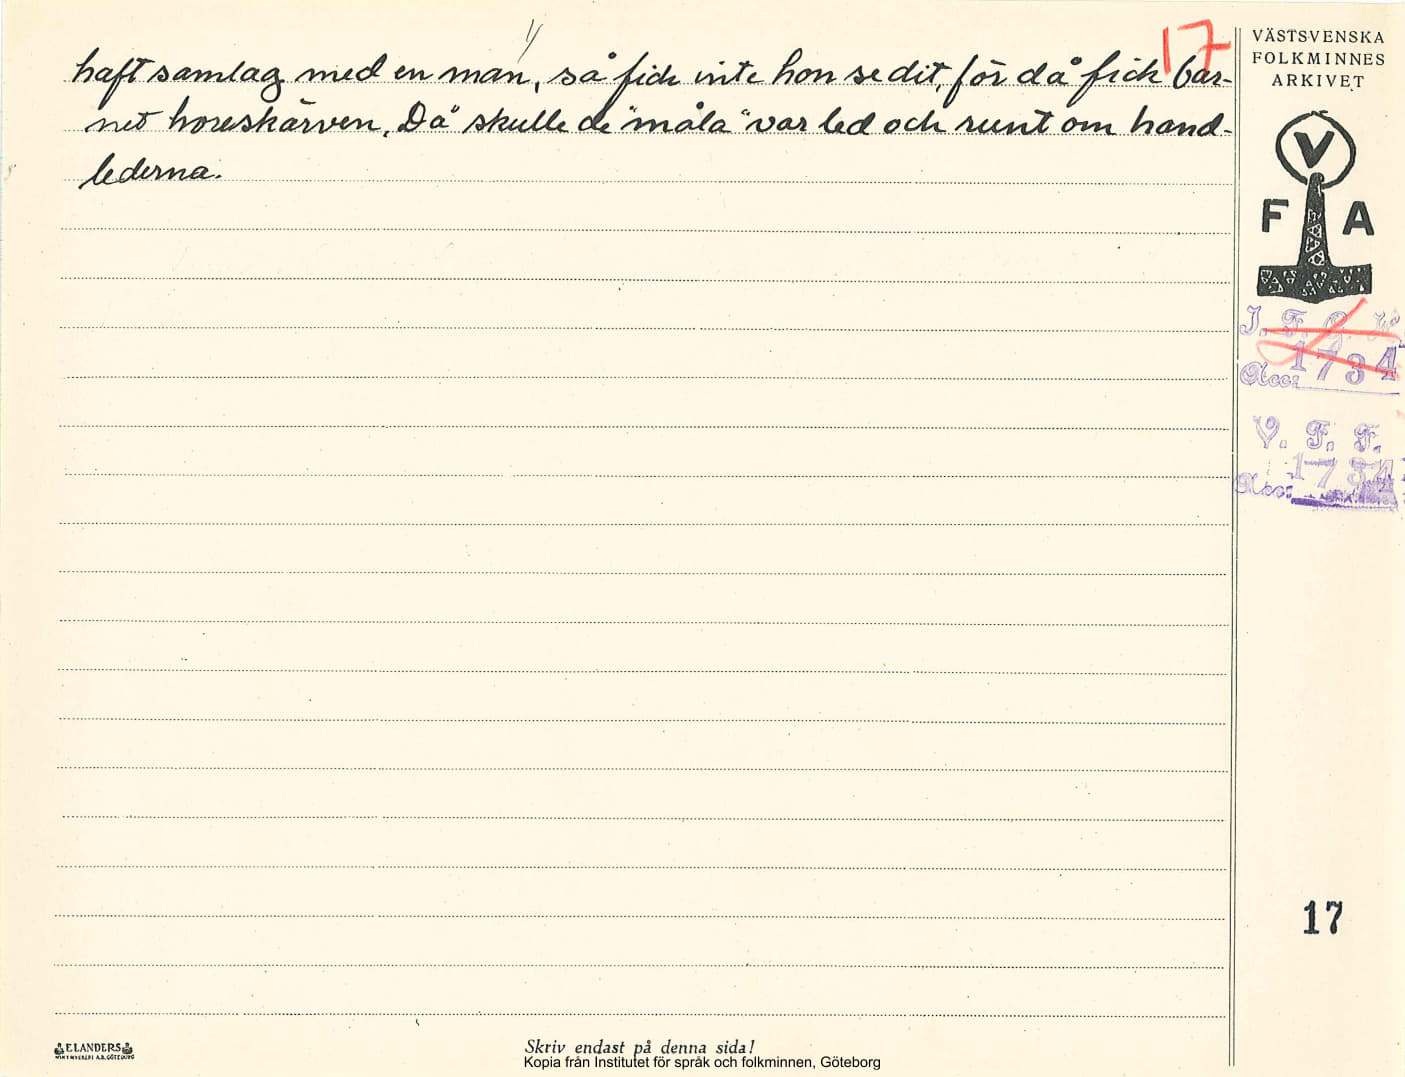 17
haft samlag med en man, så fick inte hon se dit, för då fick bar-
net horeskärven. Då skulle de "måla" var led och runt om hand-
lederna.
VÄSTSVENSKA
FOLKMINNES
ARKIVET
V
F A
I. F. G. H.
Acc: 1734
V. F. F.
Acc: 1734
17
ELANDERS
Skriv endast på denna sida!
Kopia från Institutet för språk och folkminnen, Göteborg